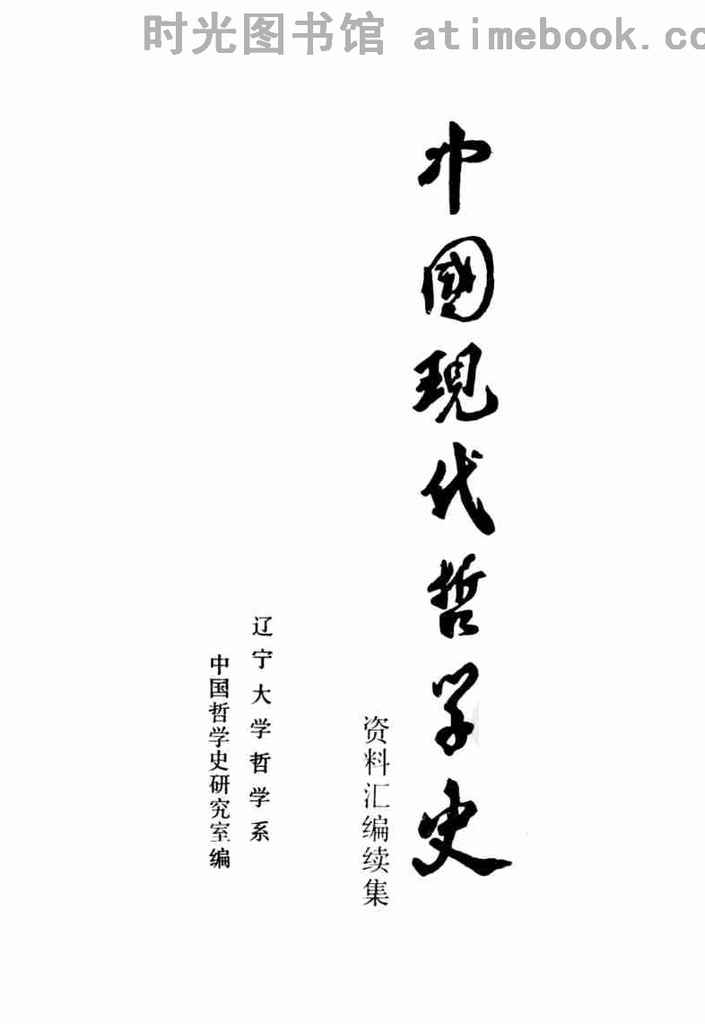 时光图书馆 atimebook.co
中國现代哲学史
资料汇编续集
辽宁大学哲学系
中国哲学史研究室编